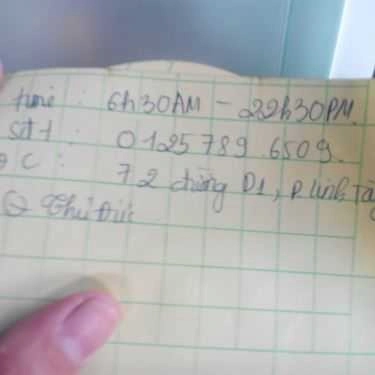 time : 6h30AM - 22h30PM
sđt : 0125789 6509.
Đ C : 72 đường D1, P. Linh Tâ
Q Thủ Đức